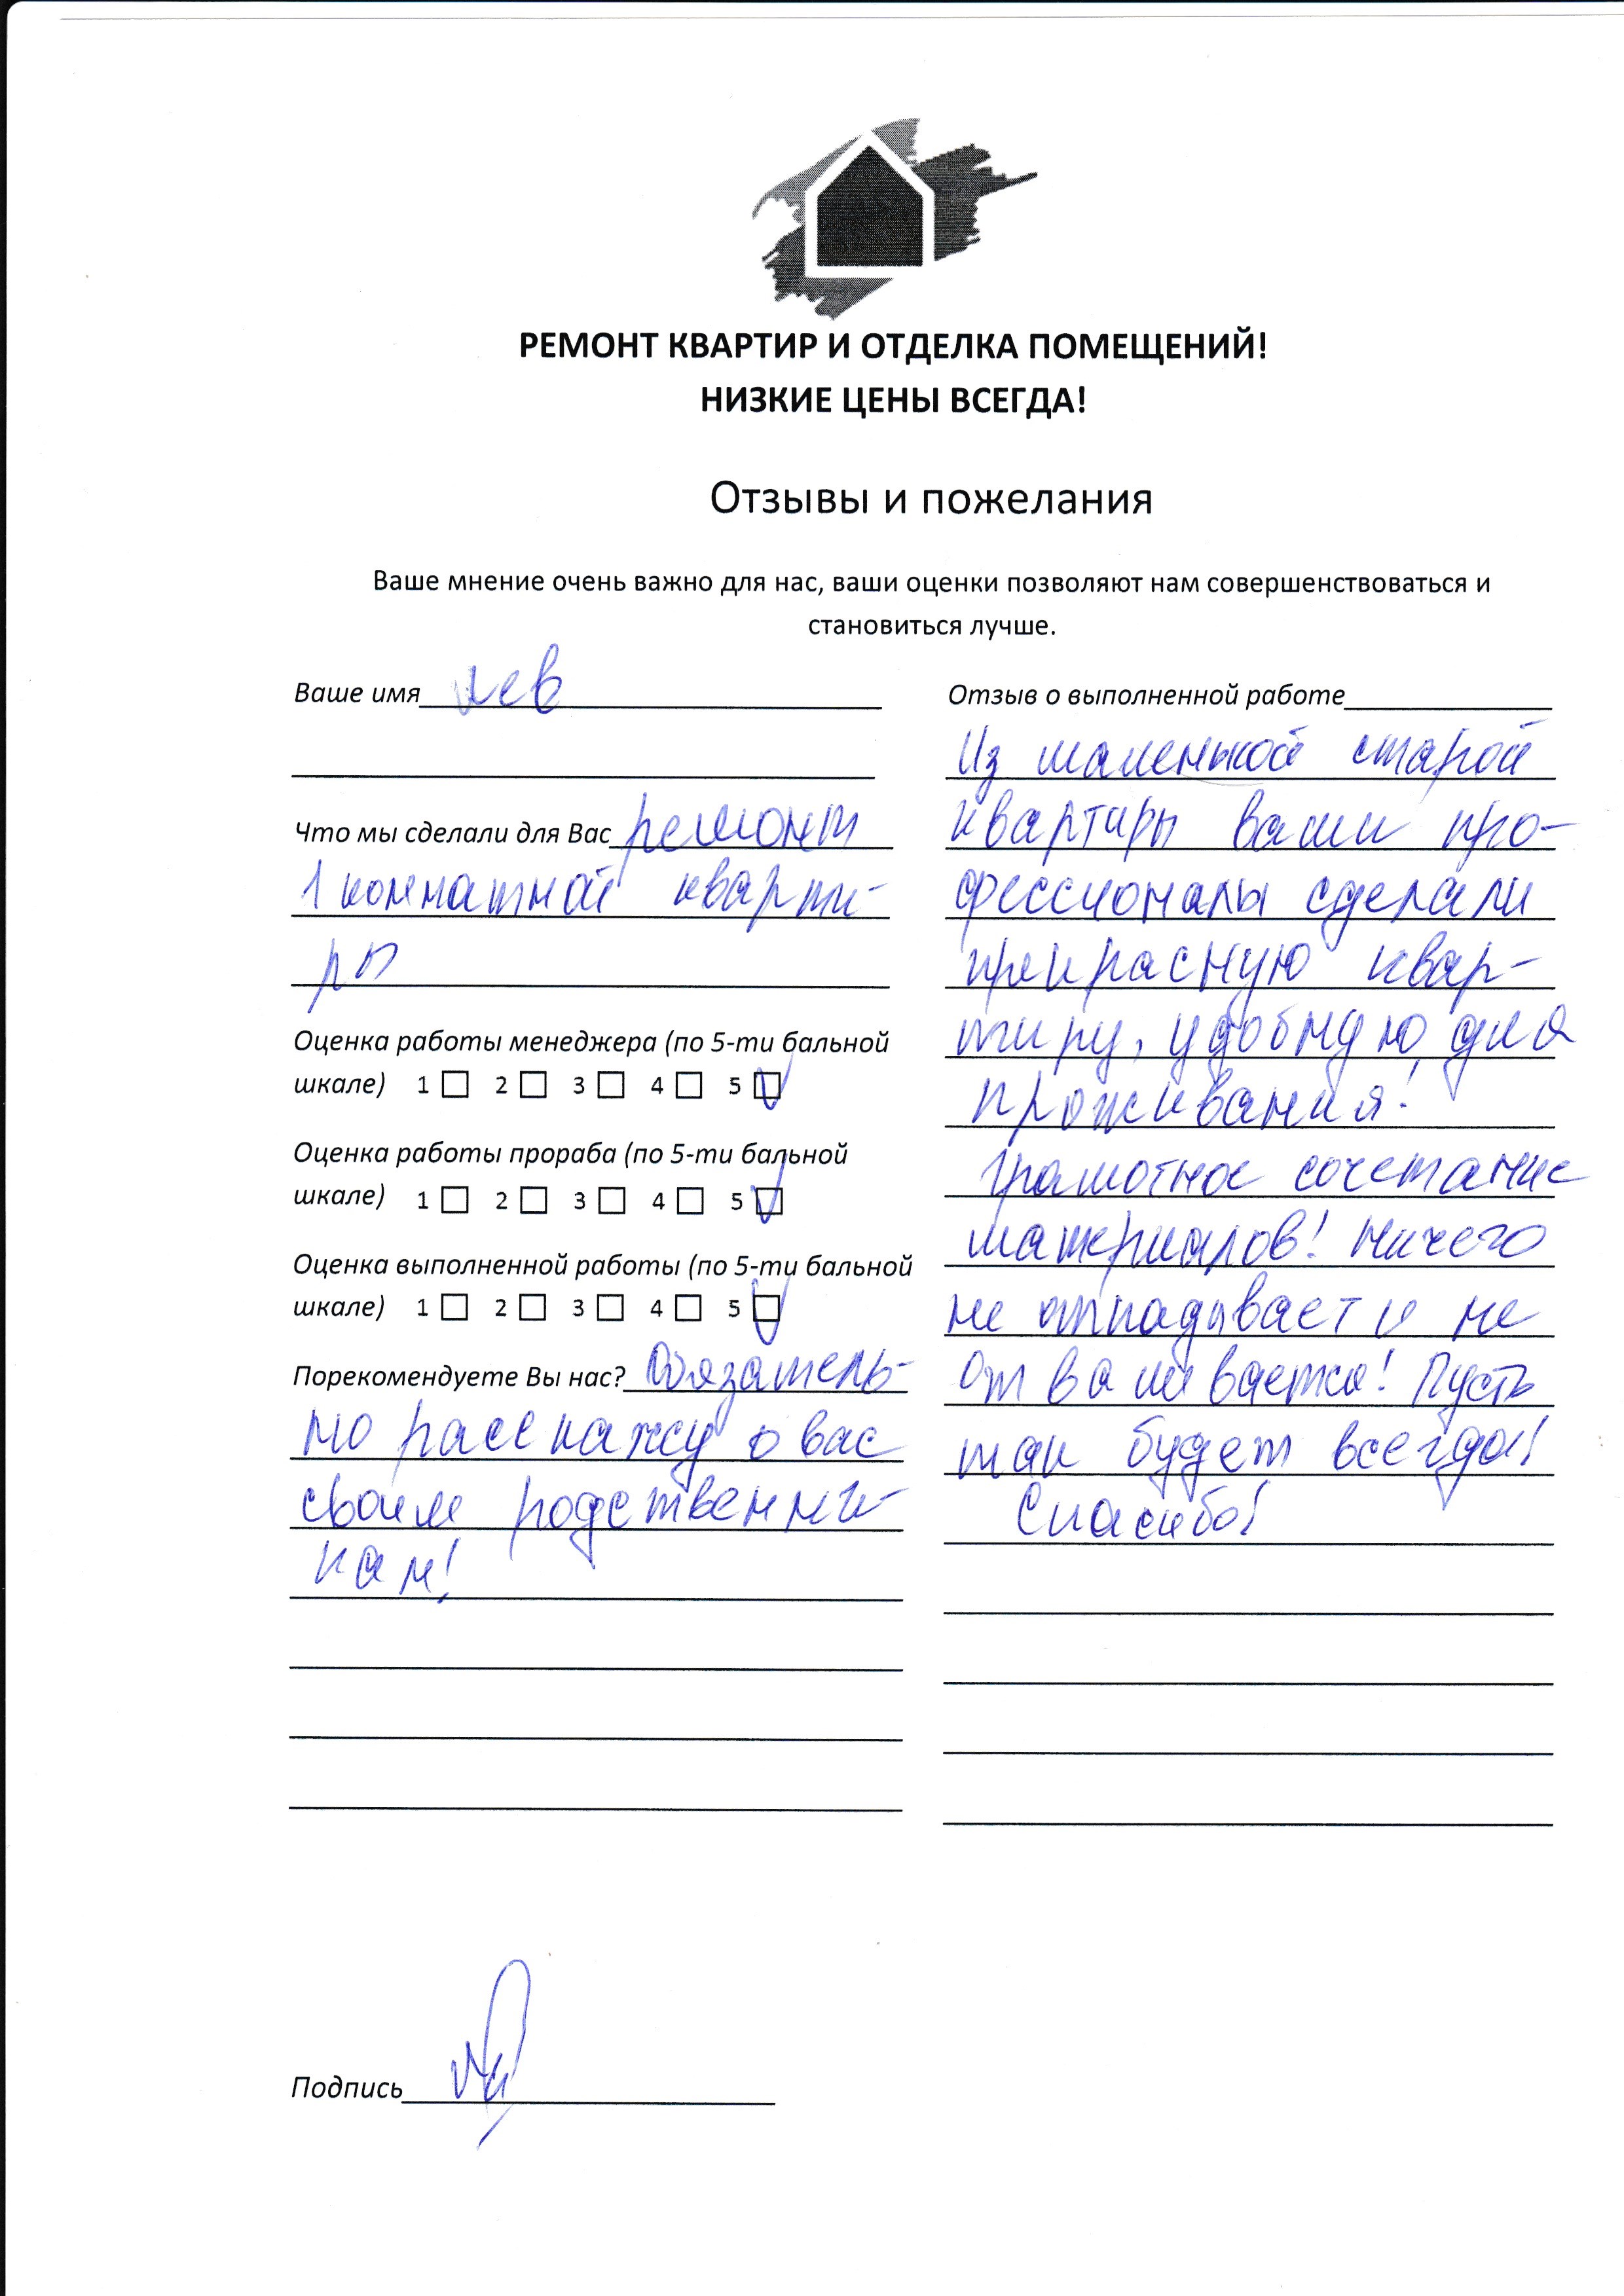 РЕМОНТ КВАРТИР И ОТДЕЛКА ПОМЕЩЕНИЙ!
НИЗКИЕ ЦЕНЫ ВСЕГДА!
Отзывы и пожелания
Ваше мнение очень важно для нас, ваши оценки позволяют нам совершенствоваться и
становиться лучше.
Ваше имя Лев
Что мы сделали для Вас ремонт
1 комнатной кварти-
ры
Оценка работы менеджера (по 5-ти бальной
шкале) 1 2 3 4 5
Оценка работы прораба (по 5-ти бальной
шкале) 1 2 3 4 5
Оценка выполненной работы (по 5-ти бальной
шкале) 1 2 3 4 5
Порекомендуете Вы нас? Обязатель-
но расскажу о вас
своим родственни-
кам!
Отзыв о выполненной работе
Из маленькой старой
квартиры ваши про-
фессионалы сделали
прекрасную квар-
тиру, удобную для
проживания!
Грамотное сочетание
материалов! Ничего
не отпадывает и не
отваливается! Пусть
так будет всегда!
Спасибо!
Подпись